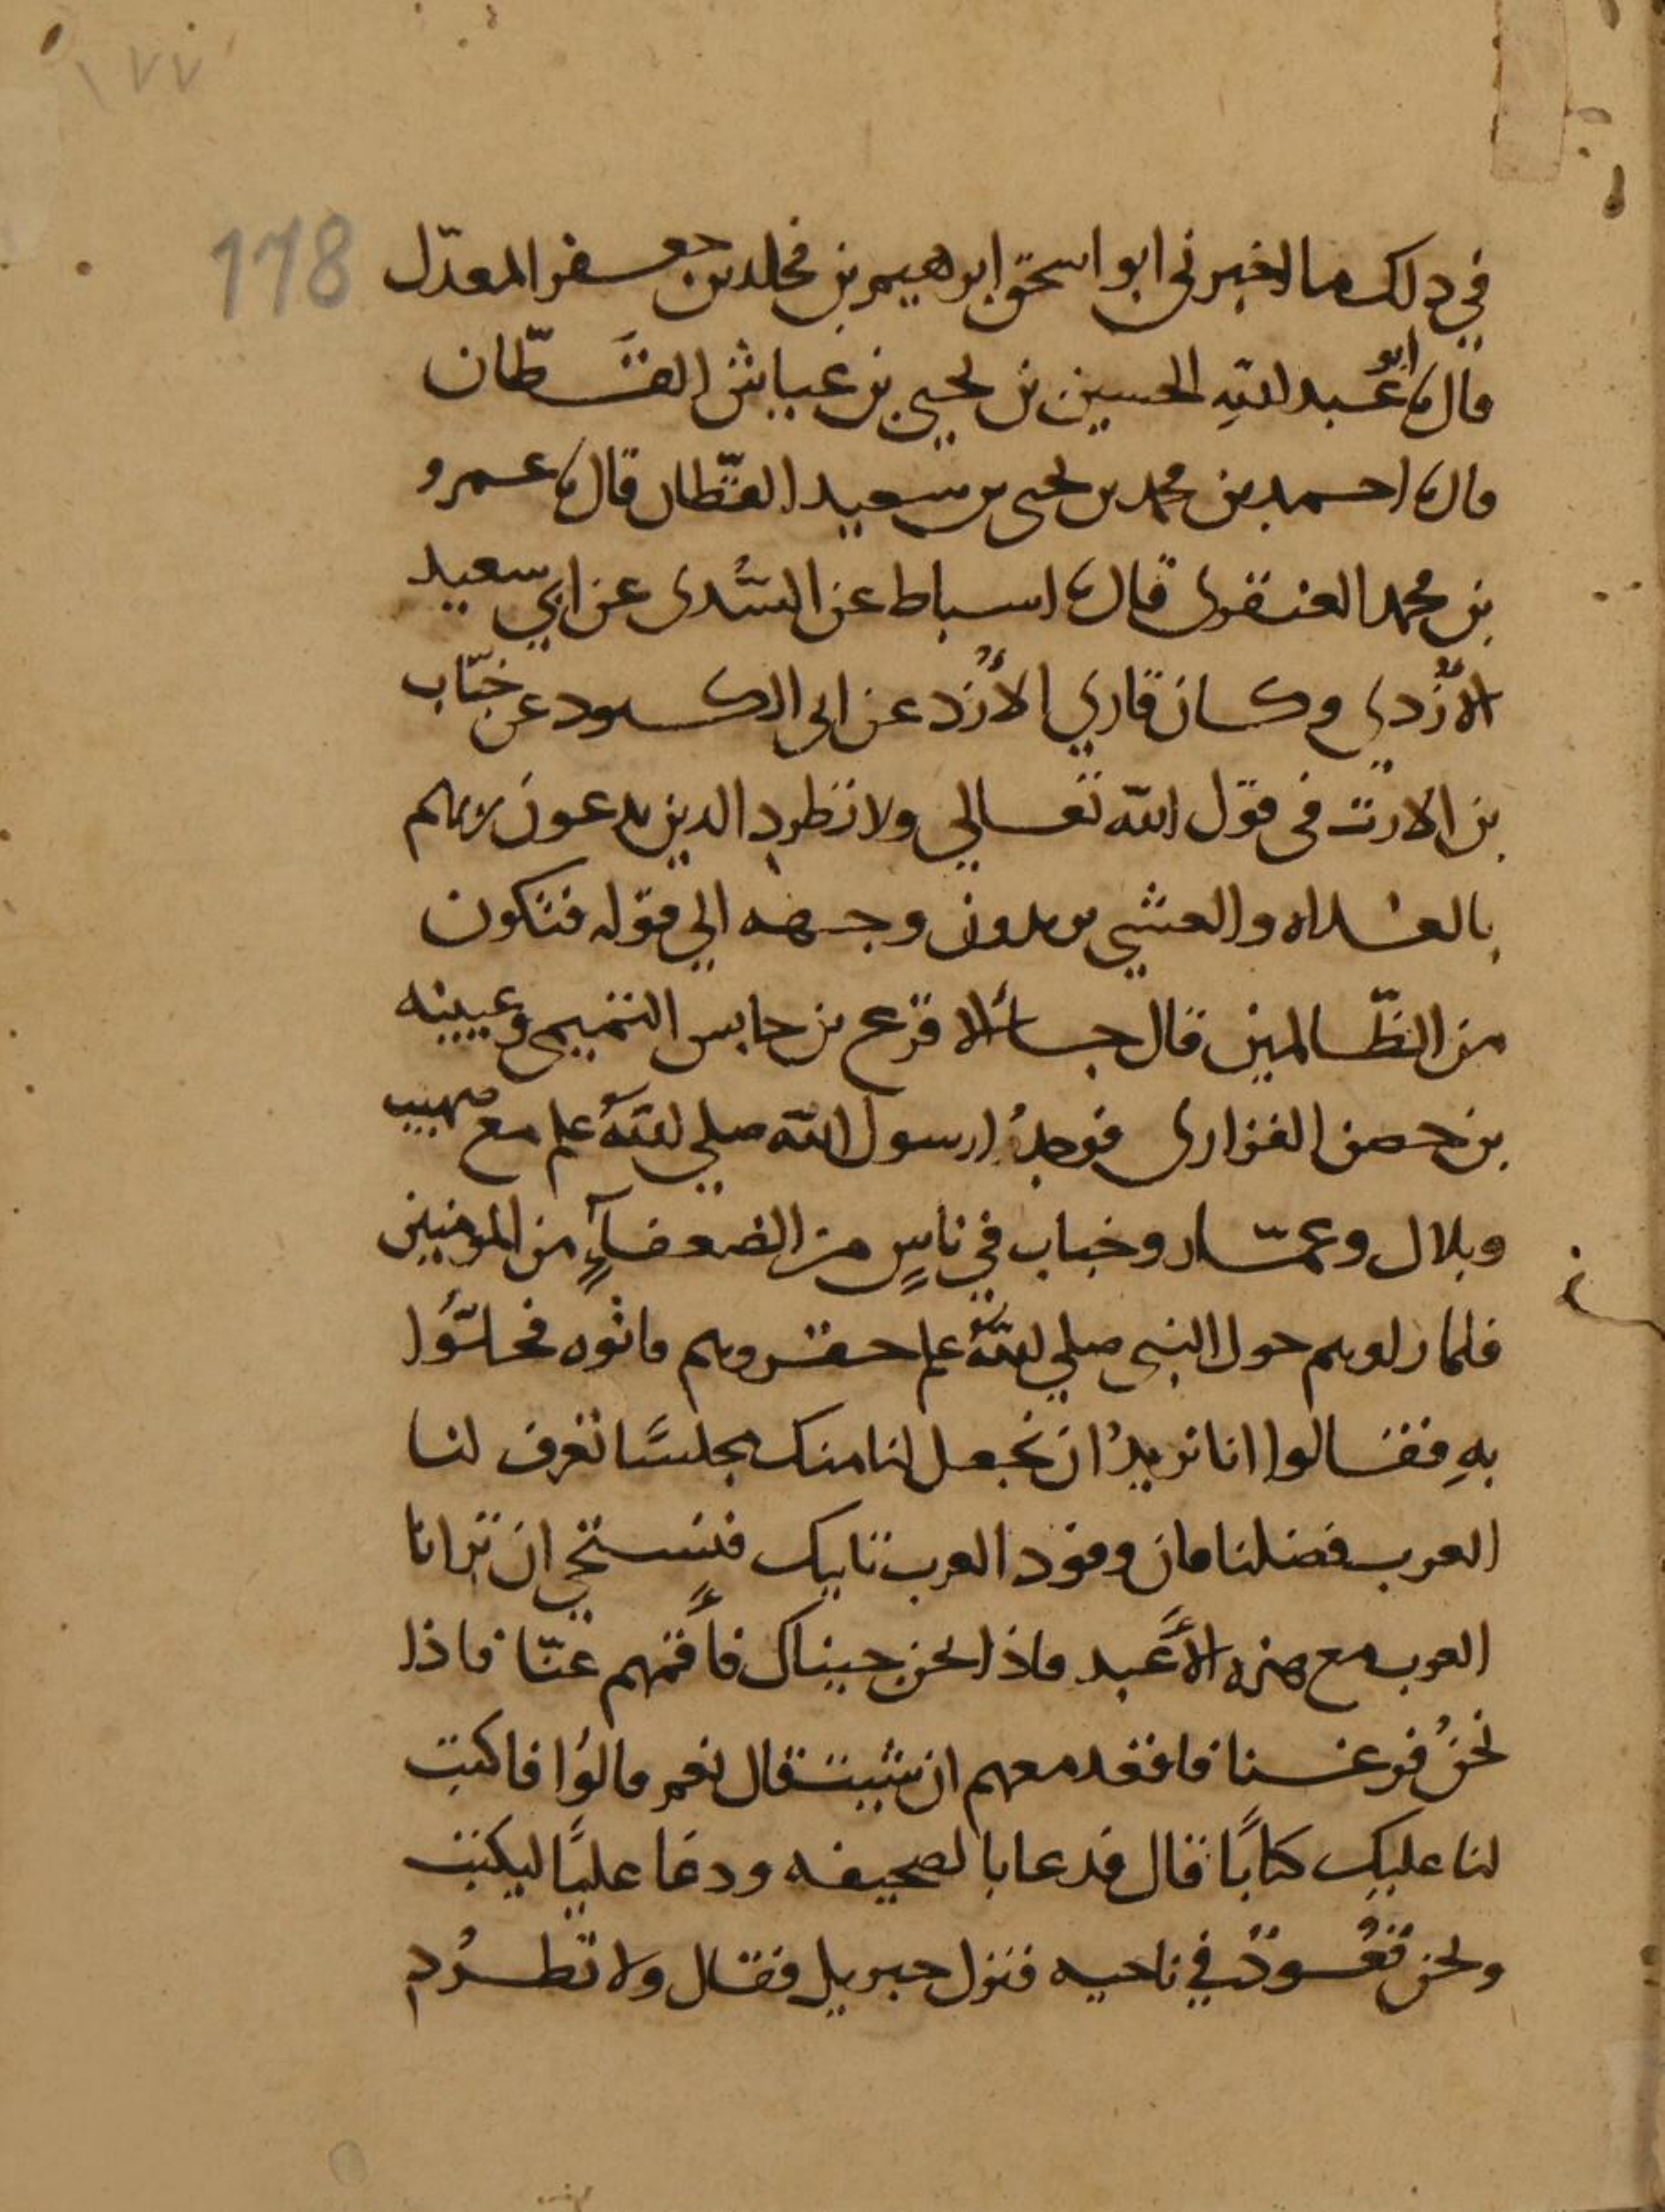 ١٧٧
178
في ذلك ما اخبرني ابو اسحق ابرهيم بن مخلد بن جعفر المعدّل
قال نا ابو عبد الله الحسين بن يحيى بن عياش القَطّان
قال نا احمد بن محمد بن يحيى بن سعيد القطّان قال نا عمرو
بن محمد العنقزى قال نا اسباط عن السُّدى عن ابي سعيد
الأزْدي وكان قاري الأزد عن ابى الكنود عن خبّاب
بن الارت في قول الله تعالي ولا تطرد الذين يدعون ربهم
بالغداه والعشي يريدون وجهه الي قوله فتكون
من الظّالمين قال جاء الاقرع بن حابس التميمي وعيينه
بن حصن الفزارى فوجدُوا رسول الله صلي الله علم مع صهيب
وبلال وعمّار وخباب في ناسٍ من الضعفاءِ من المومنين
فلما راوهم حول النبي صلي الله علم حقروهم فاتوه فخلَوُا
بهِ فقالوا انا نريدُ ان تجعل لنا منك مجلسًا تعرف لنا
العرب فضلنا فان وفود العرب تاتيك فنستحي ان ترانا
العرب مع هذه الأعبد فاذا نحن جيناك فأقمهم عنّا فاذا
نحنُ فرغنا فاقعد معهم ان شيت قال نعم قالوا فاكتب
لنا عليك كتابًا قال فدعا بالصحيفه ودعا عليًا ليكتب
ونحن قعُودٌ في ناحيه فنزل جبريل فقال ولا تطرُد